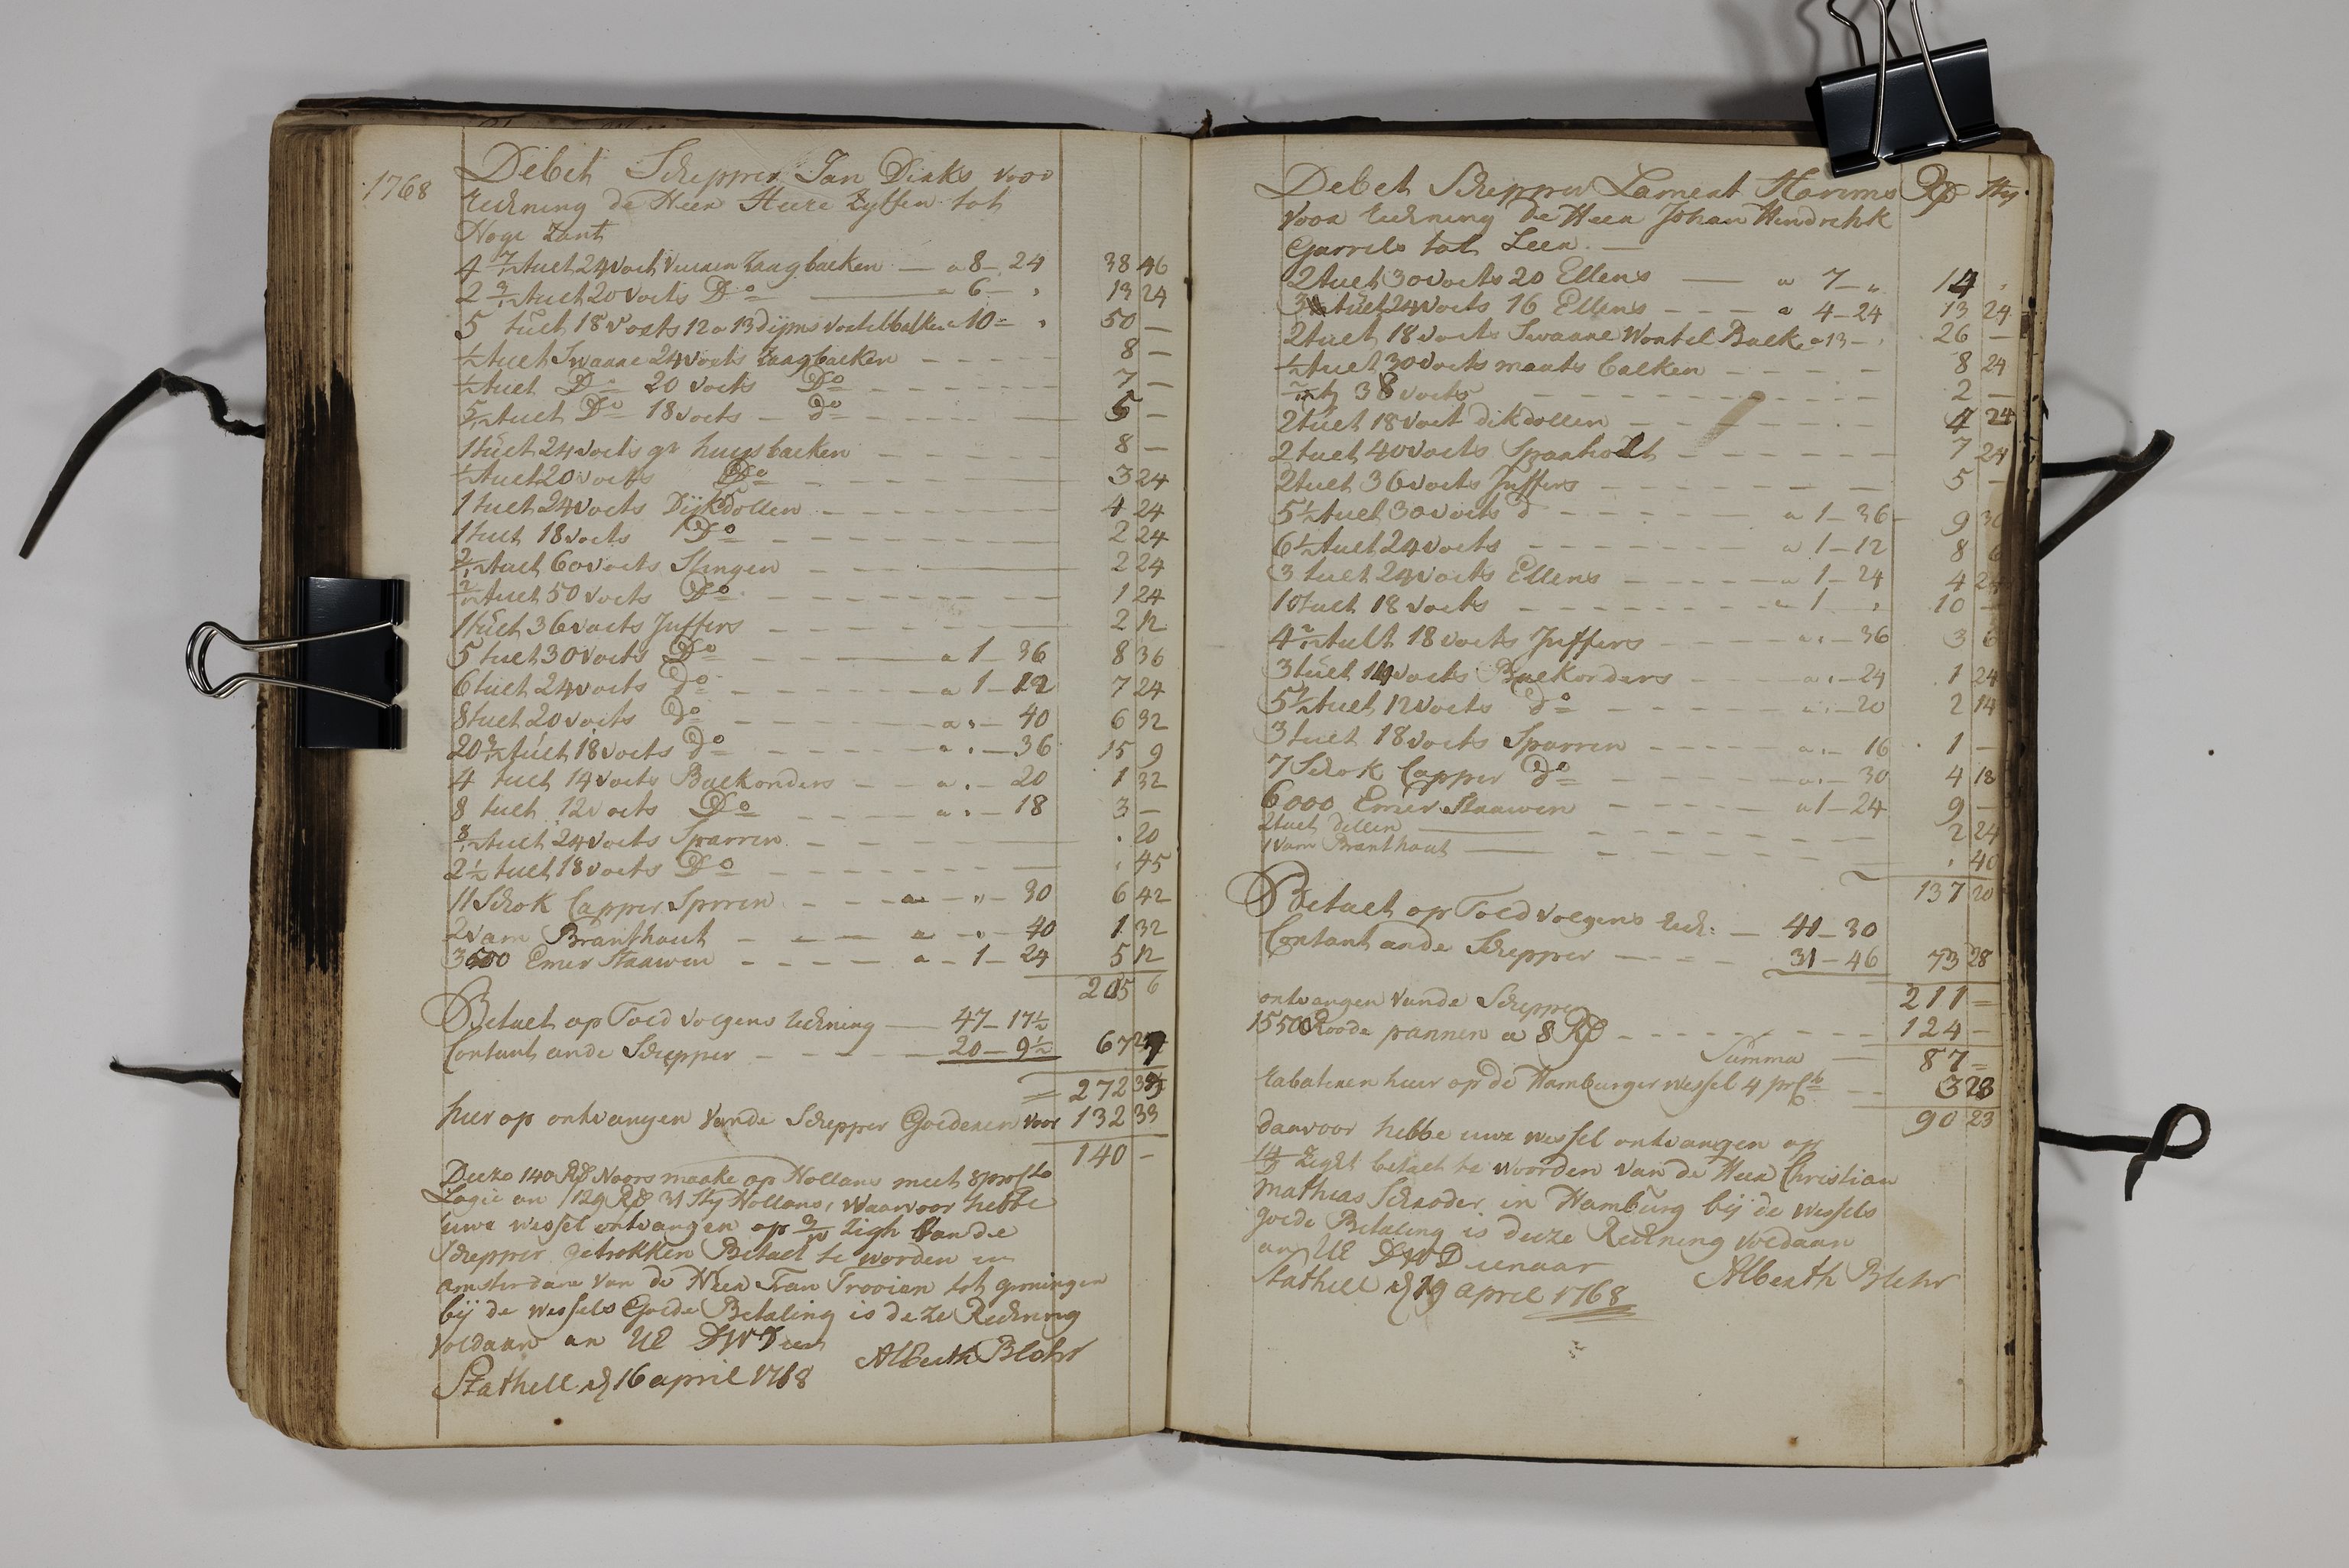 1768
Debet Schipper Jan Dirks voor
rechning de Heer Heere Zylsen tot
Hoge Zant
4 7/12 tuelt 24 voet vueren Zaagbalken — a 8 — 24 38 46
2 3/12 tuelt 20 voets Do — 6 — , 13 24
5 tuelt 18 voets 12 a 13 dijms vortelbalken a 10 = , 50 —
1/2 tuelt Swaare 24 voets Zaagbalken 8 —
1/2 tuelt Do 20 voets Do 7 —
5/12 tuelt Do 18 voets — do 5 —
1 tuelt 24 voets gr huysbalken 8 —
1/2 tuelt 20 voets Do 3 24
1 tuelt 24 voets Dijkdollen 4 24
1 tuelt 18 voets Do 2 24
2/12 tuelt 60 voets Slingen 2 24
2/12 tuelt 50 voets Do 1 24
1 tuelt 36 voets Juffers 2 12
5 tuelt 30 voets Do a 1 — 36 8 36
6 tuelt 24 voets do a 1 — 12 7 24
8 tuelt 20 voets do a , — 40 6 32
20 3/12 tuelt 18 voets do a , — 36 15 9
4 tuelt 14 voets Baelkonders a , — 20 1 32
8 tuelt 12 voets Do a , — 18 3 —
8/12 tuelt 24 voets Sparren , 20
2 1/2 tuelt 18 voets Do , 45
11 Schok Capper Sprren a — " — 30 6 42
2 vam Branthout a — " — 40 1 32
3500 Emer Staawen a — 1 — 24 5 12
205 6
Betaelt op Told volgens rechning — 47 — 17 1/2
Contant ande Schipper 20 — 9 1/2 67 27
272 33
hier op ontvangen vande Schipper Goederen voor 132 33
140 —
Deeze 140 Rd Noors maake op Hollans meet 8 pro Cto
Lagie an /129 Rd 31 sty Hollans, waarvoor hebbe
uwe wessel ontvangen op zigh van de
Schipper getrokken Betaelt te worden in
amsterdam van de Heer Jan Trooien tot groningen
bij de wessels Goede Betaling is deze Rechning
voldaan an UE DWDien
Alberth Blehr
Stathell d 16 april 1768
Debet Schipper Lamert Harms Rd sty
voor rechning de Heer Johan Hindrehk
Garrels tot Leer. —
2 tuelt 30 voets 20 Ellens — a 7 — " 14 ,
3 tuelt 24 voets 16 Ellens a 4 — 24 13 24
2 tuelt 18 voets Swaare Wortel Balk a 13 — , 26 —
1/2 tuelt 30 voets maats balken 8 24
38 voets 2 —
2 tuelt 18 voet dikdollen 4 24
2 tuelt 40 voets Spanholt 7 24
2 tuelt 36 voets Juffers 5 —
5 1/2 tuelt 30 voets d a 1 — 36 9 30
6 1/2 tuelt 24 voets a 1 — 12 8 6
3 tuelt 24 voets Ellens a 1 — 24 4 24
10 tuelt 18 voets a 1 , 10 —
4 2/12 tuelt 18 voets Juffers a , — 36 3 6
3 tuelt 14 voets Baelkonders a , — 24 1 24
5 1/2 tuelt 12 voets do a , — 20 2 14
3 tuelt 18 voets Sparren a , — 16 1 —
7 Schok Capper do a , — 30 4 18
6000 Emer Staawen a 1 — 24 9 —
2 tuelt dellen 2 24
1 vam Branthout , 40
137 20
Betaelt op Told volgens rech: — 41 — 30
Contant ande Schipper 31 — 46 73 28
211 =
ontvangen vande Schipper
1550 Roode pannen a 8 Rd 124 —
Summa 87 =
rabateren hier op de Hamburger wessel 4 pr Cto 3 23
90 23
daarvoor hebbe uwe wessel ontvangen op
14/D Zight betaelt te woorden van de Heer Christian
mathias Schroder in Hamburg bij de wessels
goede Betaling is deeze Rechning voldaan
an UE DWDienaar
Stathell d 19 april 1768 Alberth Blehr